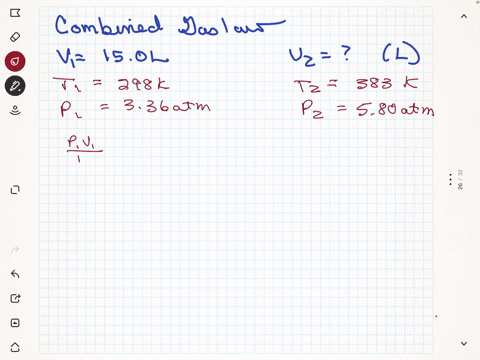 Combined Gas law
V₁= 15.0L V₂ = ? (L)
T₁ = 298K T₂ = 383 K
P₁ = 3.36atm P₂ = 5.80atm
P₁V₁
1
26 / 32